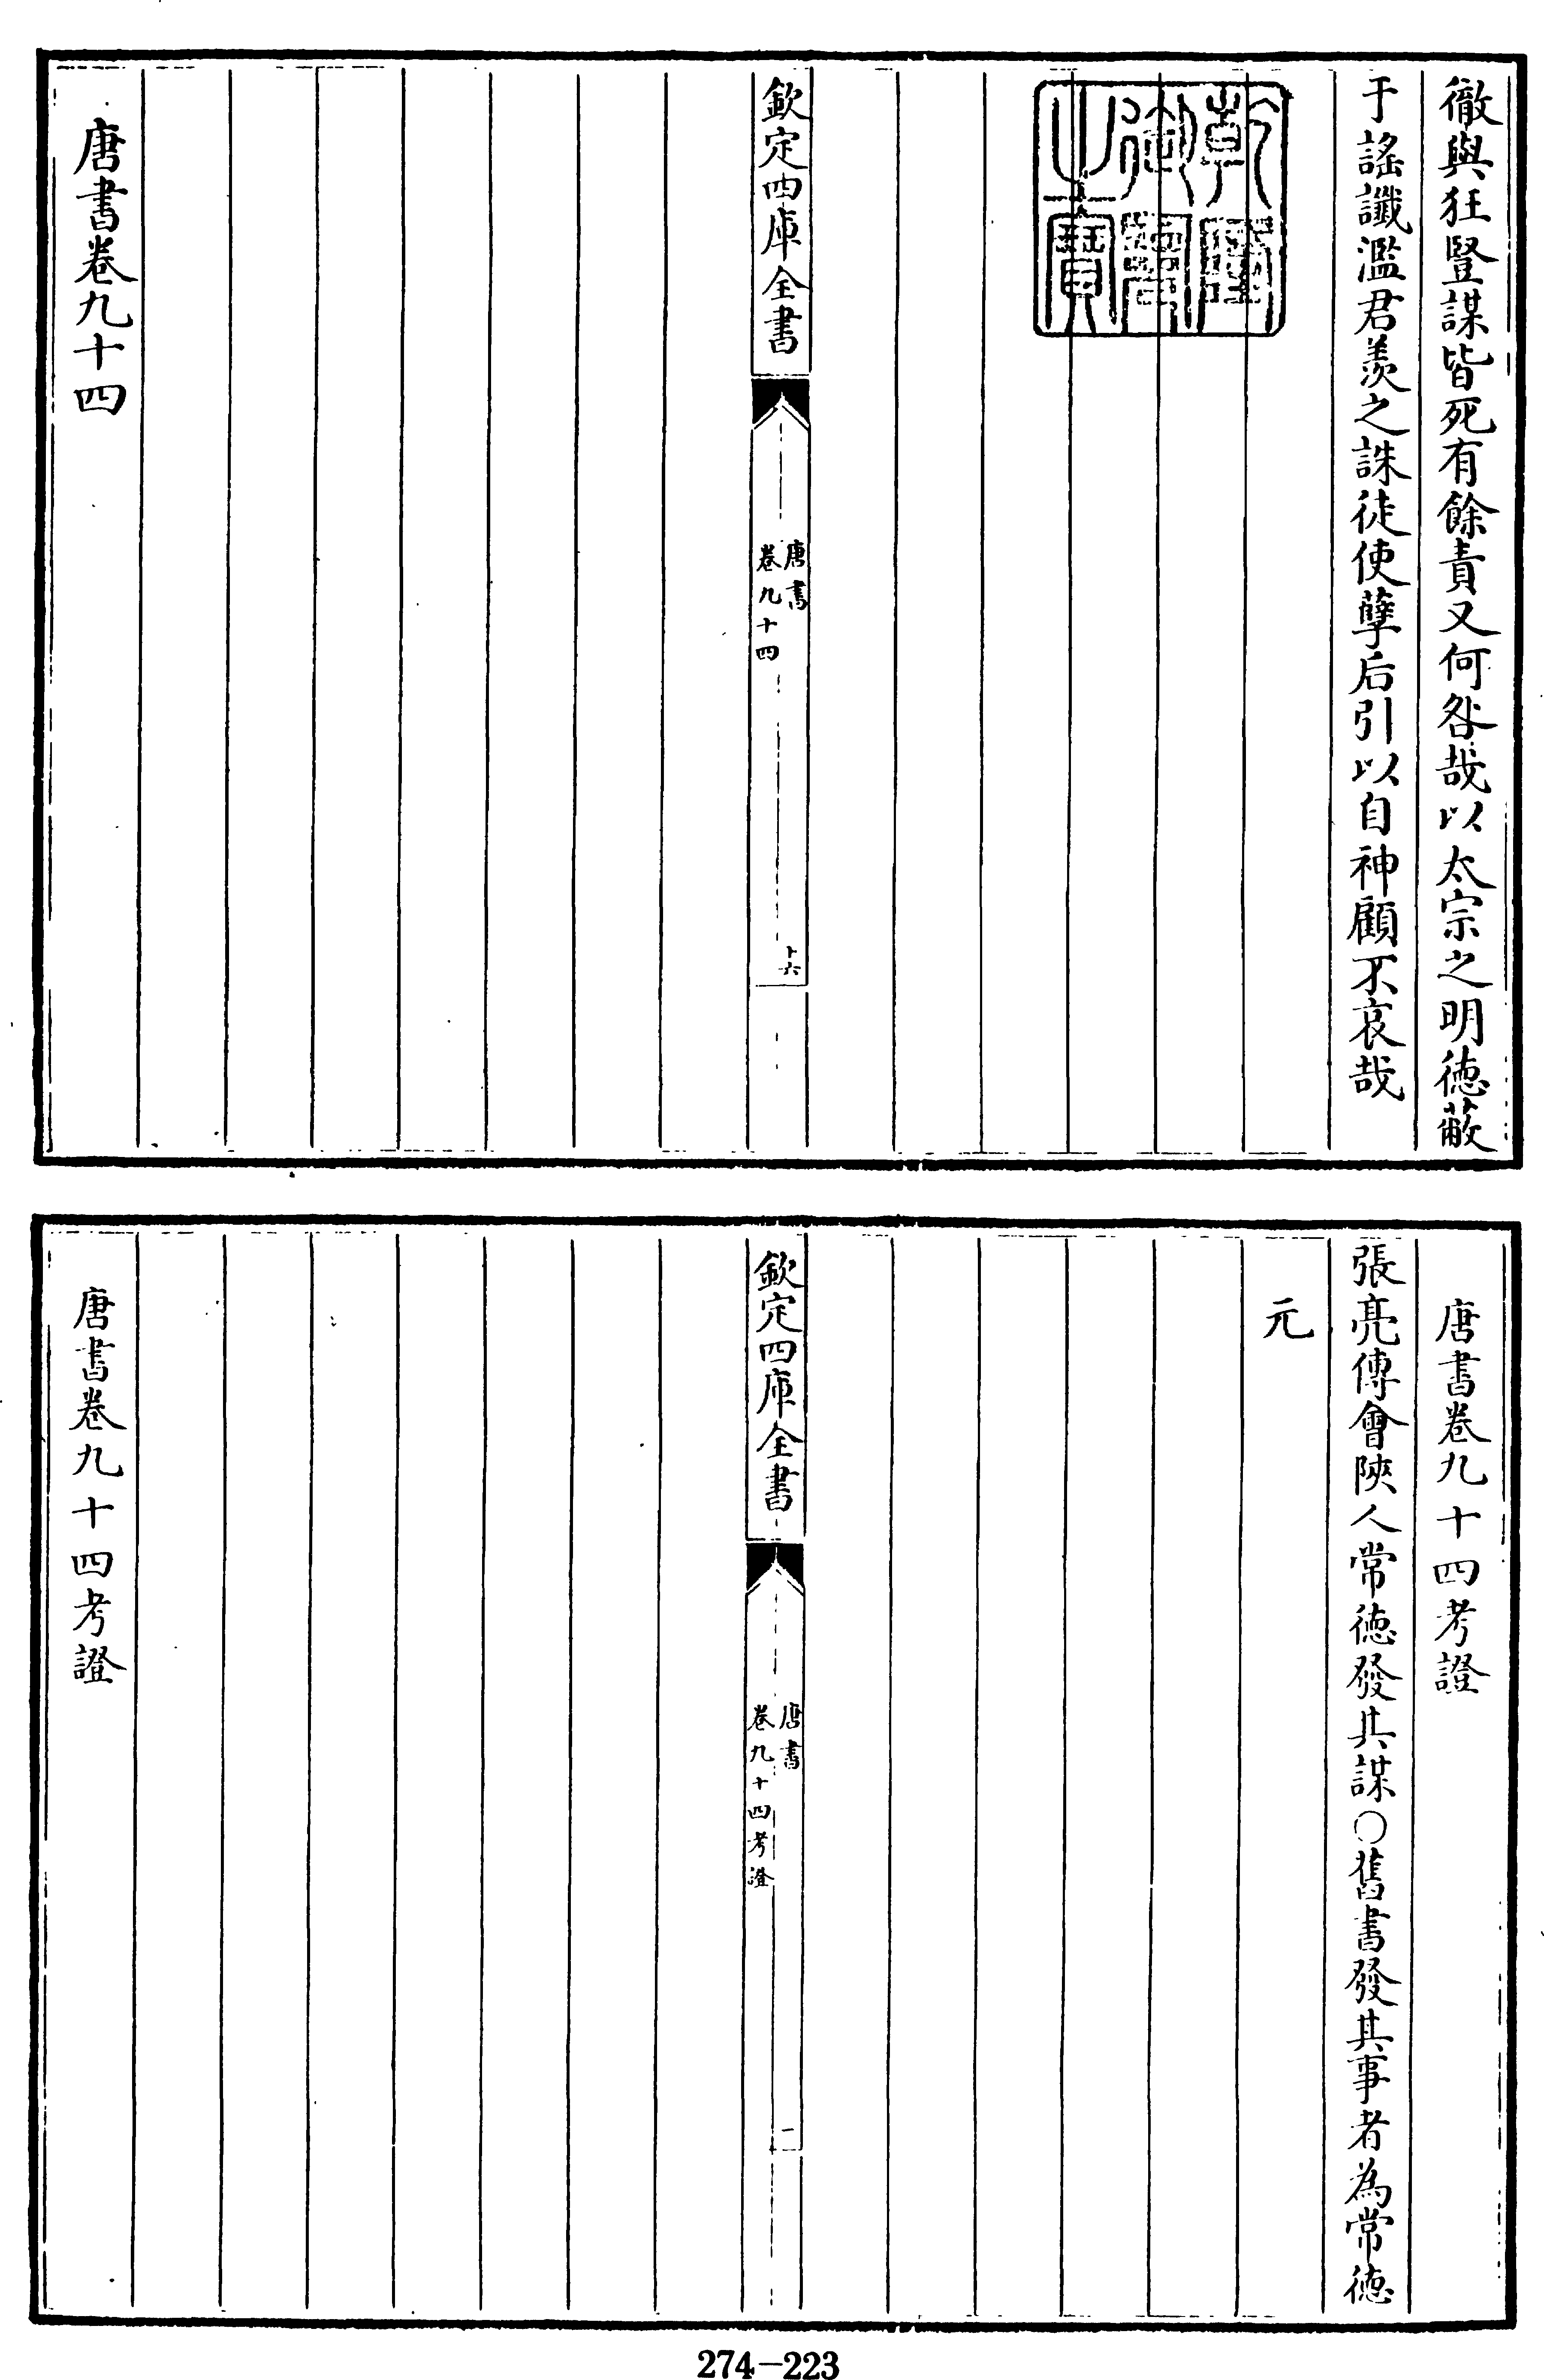 徹與狂豎謀皆死有餘責又何咎哉以太宗之明徳蔽
于謠讖濫君羨之誅徒使孽后引以自神顧不哀哉
乾隆御覽之寶
欽定四庫全書
唐書
卷九十四
十六
唐書卷九十四
唐書卷九十四考證
張亮傳會陝人常徳發其謀〇舊書發其事者為常徳
元
欽定四庫全書
唐書
卷九十四考證
一
唐書卷九十四考證
274-223